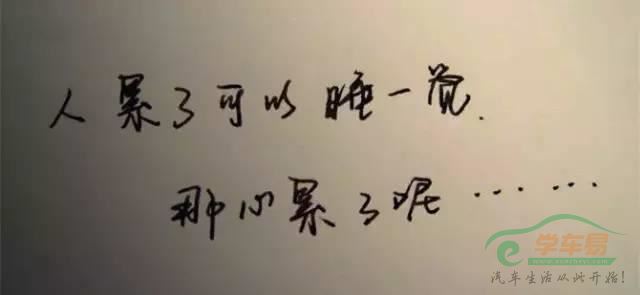 人累了可以睡一觉.
那心累了呢……
学车易
汽车生活从此开始!